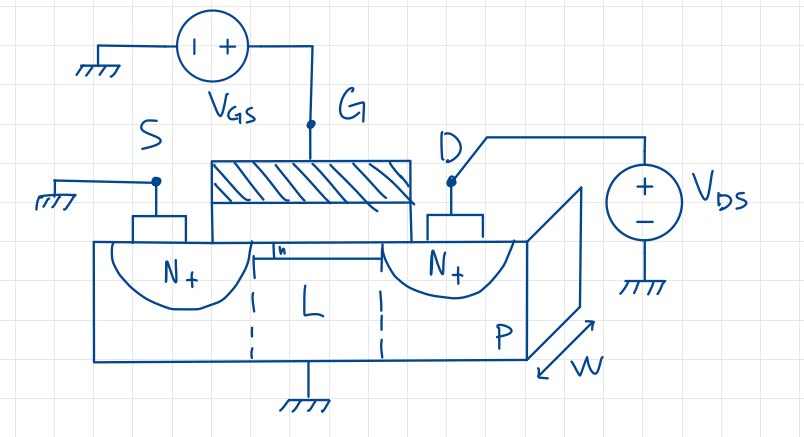 − +
V_GS
G
S
D
+
−
V_DS
N+
n
N+
L
P
W